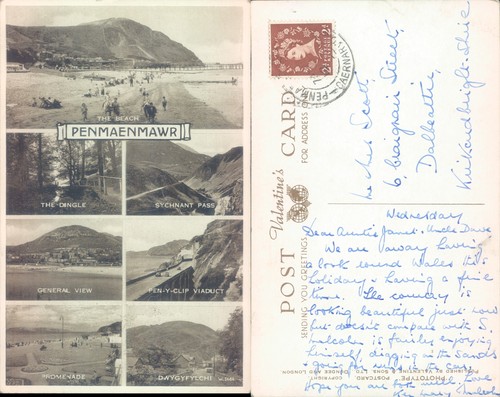 THE BEACH
PENMAENMAWR
THE DINGLE
SYCHNANT PASS
GENERAL VIEW
PEN-Y-CLIP VIADUCT
PROMENADE
DWYGYFYLCHI
POST CARD
Valentine's
SENDING YOU GREETINGS
FOR ADDRESS
"PHOTOTYPE" POSTCARD
PUBLISHED BY VALENTINE & SONS, LTD. DUNDEE AND LONDON
CAERNAR
PENM
2D 2D
Scott
6 Craignair Street,
Dalbeattie,
Kirkcudbrightshire
Wednesday
Dear Auntie Janet & Uncle Dave
We are away having
a look round Wales this
holiday & having a fine
time. The country is
looking beautiful just now
but doesn't compare with S.
Malcolm is enjoying
himself digging in the sands
& going for in the car
Hope you are both well. Love